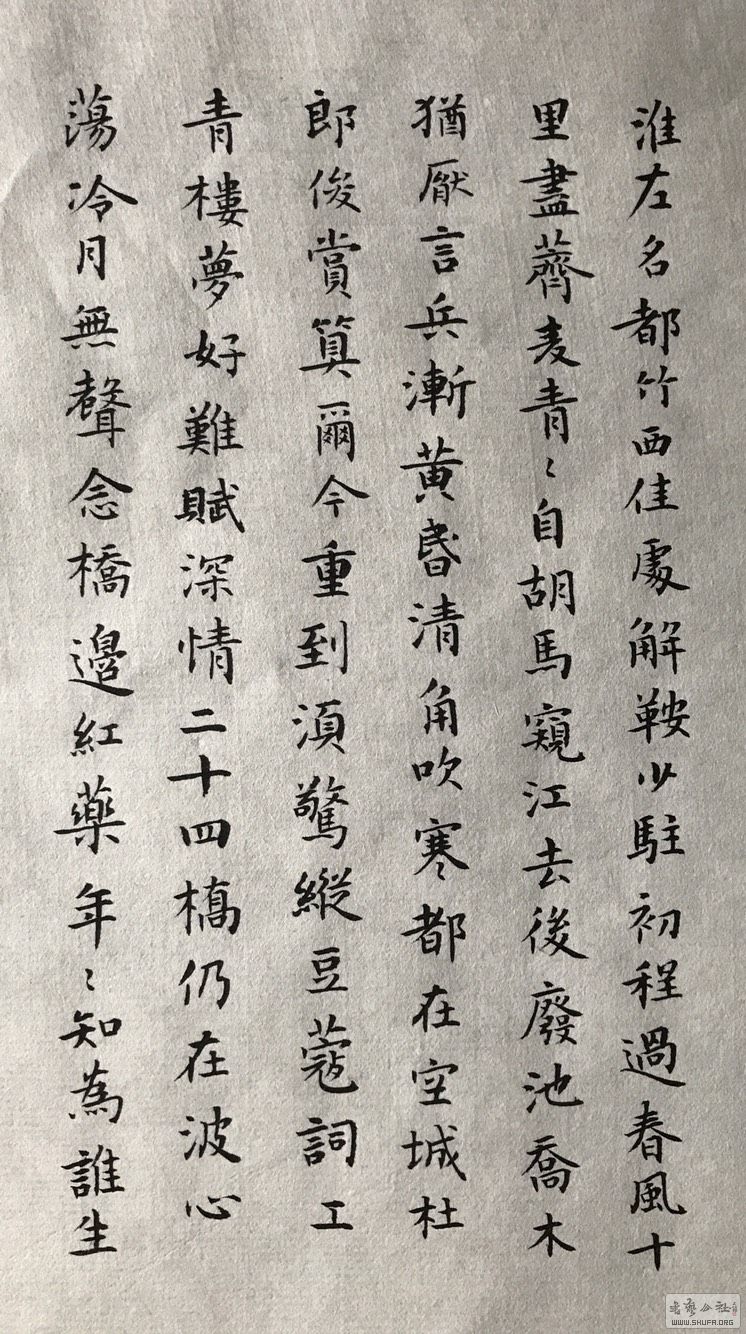 淮左名都竹西佳處解鞍少駐初程過春風十
里盡薺麦青〻自胡馬窺江去後廢池喬木
猶厭言兵漸黄昏清角吹寒都在空城杜
郎俊賞算爾今重到須驚縱豆蔻詞工
青樓夢好難賦深情二十四橋仍在波心
蕩冷月無聲念橋邊紅藥年〻知為誰生
WWW.SHUFA.ORG